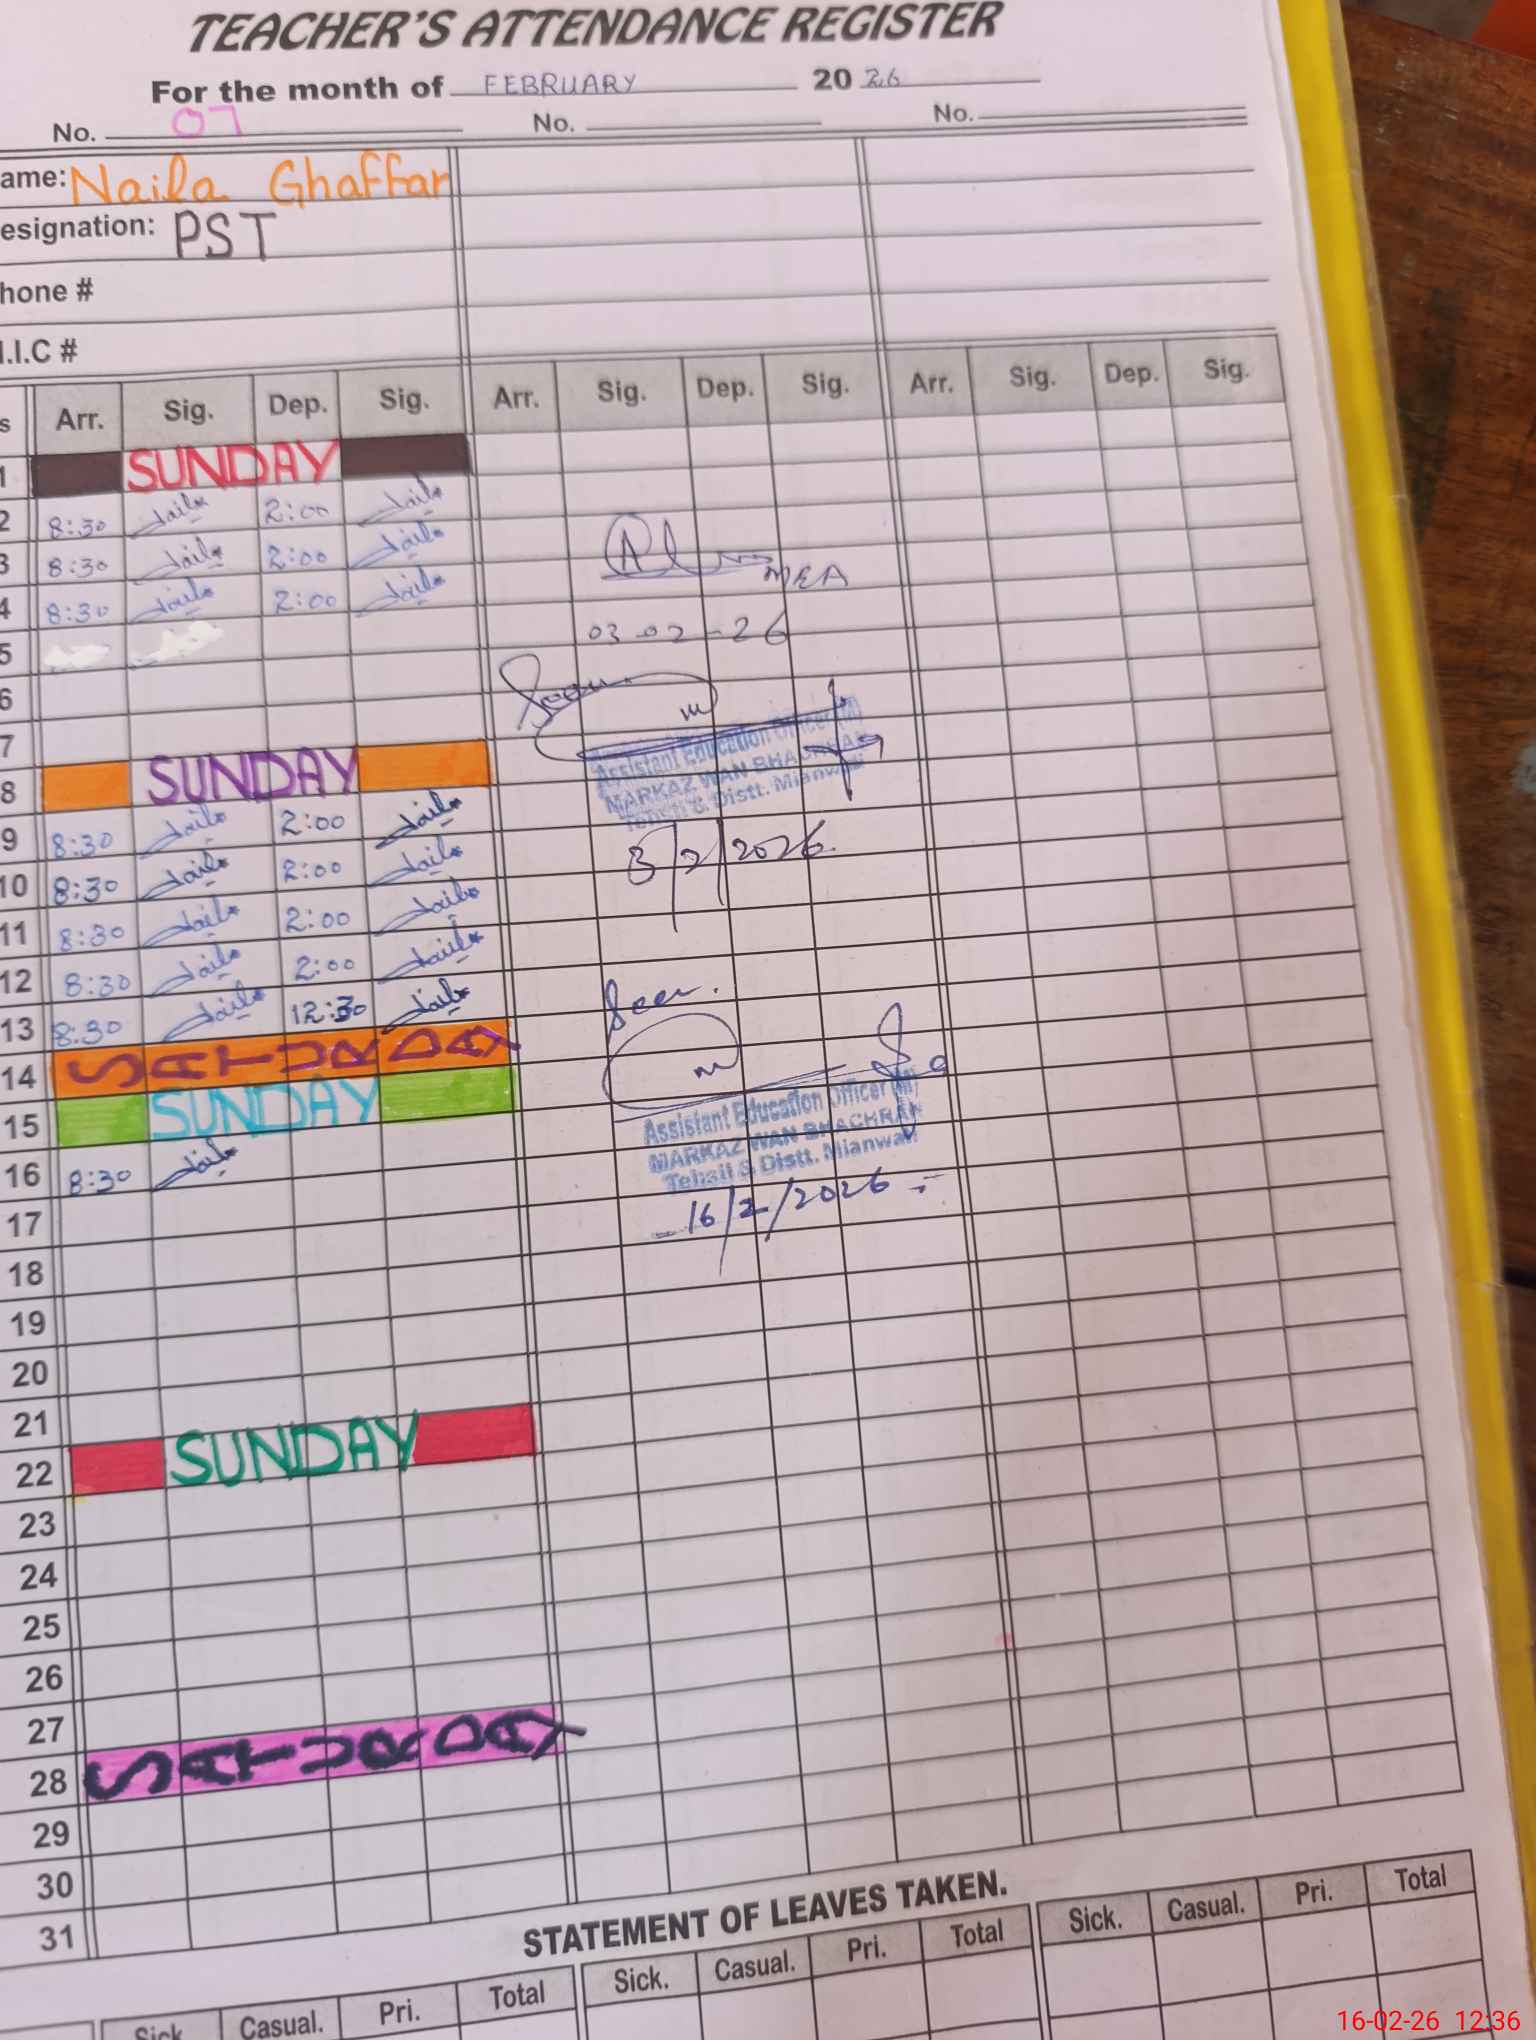 TEACHER'S ATTENDANCE REGISTER
For the month of FEBRUARY 2026
No. 07 No. No.
ame: Naila Ghaffar
esignation: PST
hone #
.I.C #
s Arr. Sig. Dep. Sig. Arr. Sig. Dep. Sig. Arr. Sig. Dep. Sig.
1 SUNDAY
2 8:30 نایلہ 2:00 نایلہ
3 8:30 نایلہ 2:00 نایلہ
MEA
4 8:30 نایلہ 2:00 نایلہ
03-02-26
5
6
Seen
7
Assistant Education Officer (M)
8 SUNDAY
MARKAZ WAN BHACHRAN
Tehsil & Distt. Mianwali
9 8:30 نایلہ 2:00 نایلہ
3/2/2026
10 8:30 نایلہ 2:00 نایلہ
11 8:30 نایلہ 2:00 نایلہ
12 8:30 نایلہ 2:00 نایلہ
Seen.
13 8:30 نایلہ 12:30 نایلہ
14 SATURDAY
15 SUNDAY
Assistant Education Officer (M)
MARKAZ WAN BHACHRAN
Tehsil & Distt. Mianwali
16 8:30 نایلہ
16/2/2026
17
18
19
20
21
22 SUNDAY
23
24
25
26
27
28 SATURDAY
29
30
31
STATEMENT OF LEAVES TAKEN.
Sick. Casual. Pri. Total Sick. Casual. Pri. Total Sick. Casual. Pri. Total
16-02-26 12:36